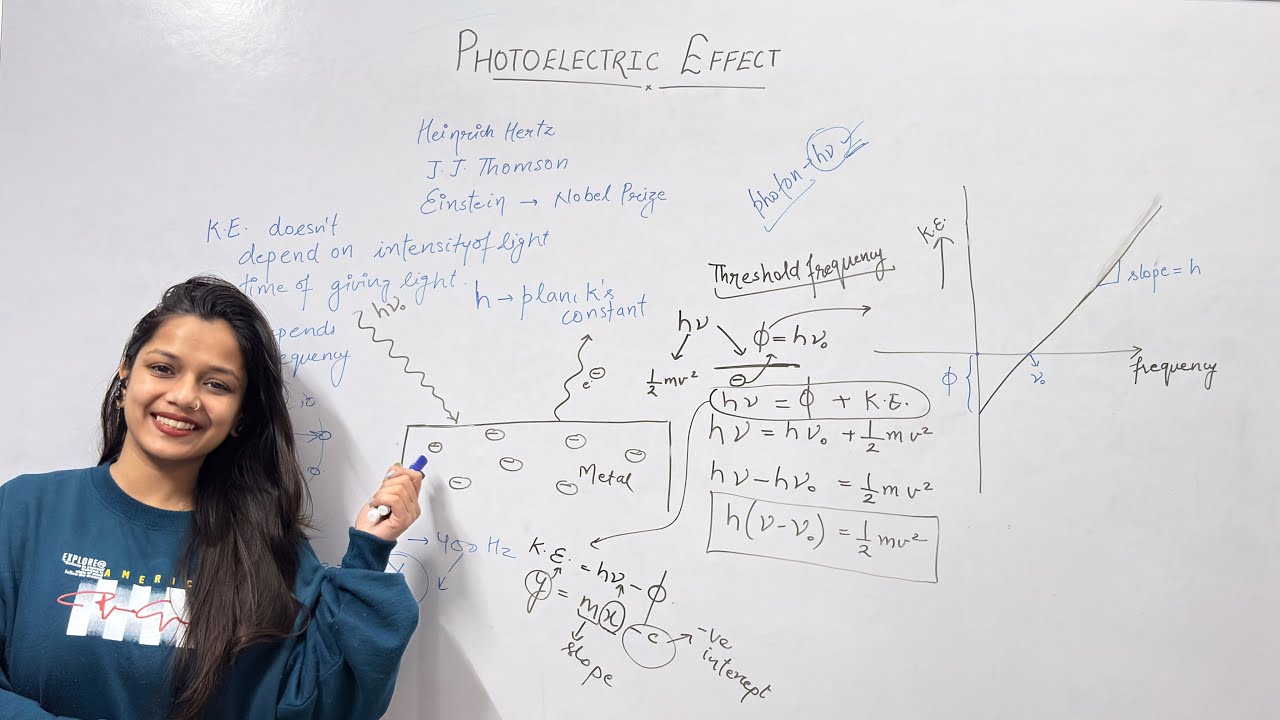 PHOTOELECTRIC EFFECT
Heinrich Hertz
J.J. Thomson
Einstein → Nobel Prize
K.E. doesn't
depend on intensity of light
time of giving light.
pends
equency
h → planck's
constant
photon → hν
hν₀
e⁻
Metal
→ 400 Hz
Threshold frequency
hν
ϕ = hν₀
½mv²
hν = ϕ + K.E.
hν = hν₀ + ½mv²
hν - hν₀ = ½mv²
h(ν - ν₀) = ½mv²
K.E. = hν - ϕ.
y = mx - c
slope
-ve
intercept
K.E.
slope = h
ϕ
ν₀
frequency
EXPLORE@
AMERIC